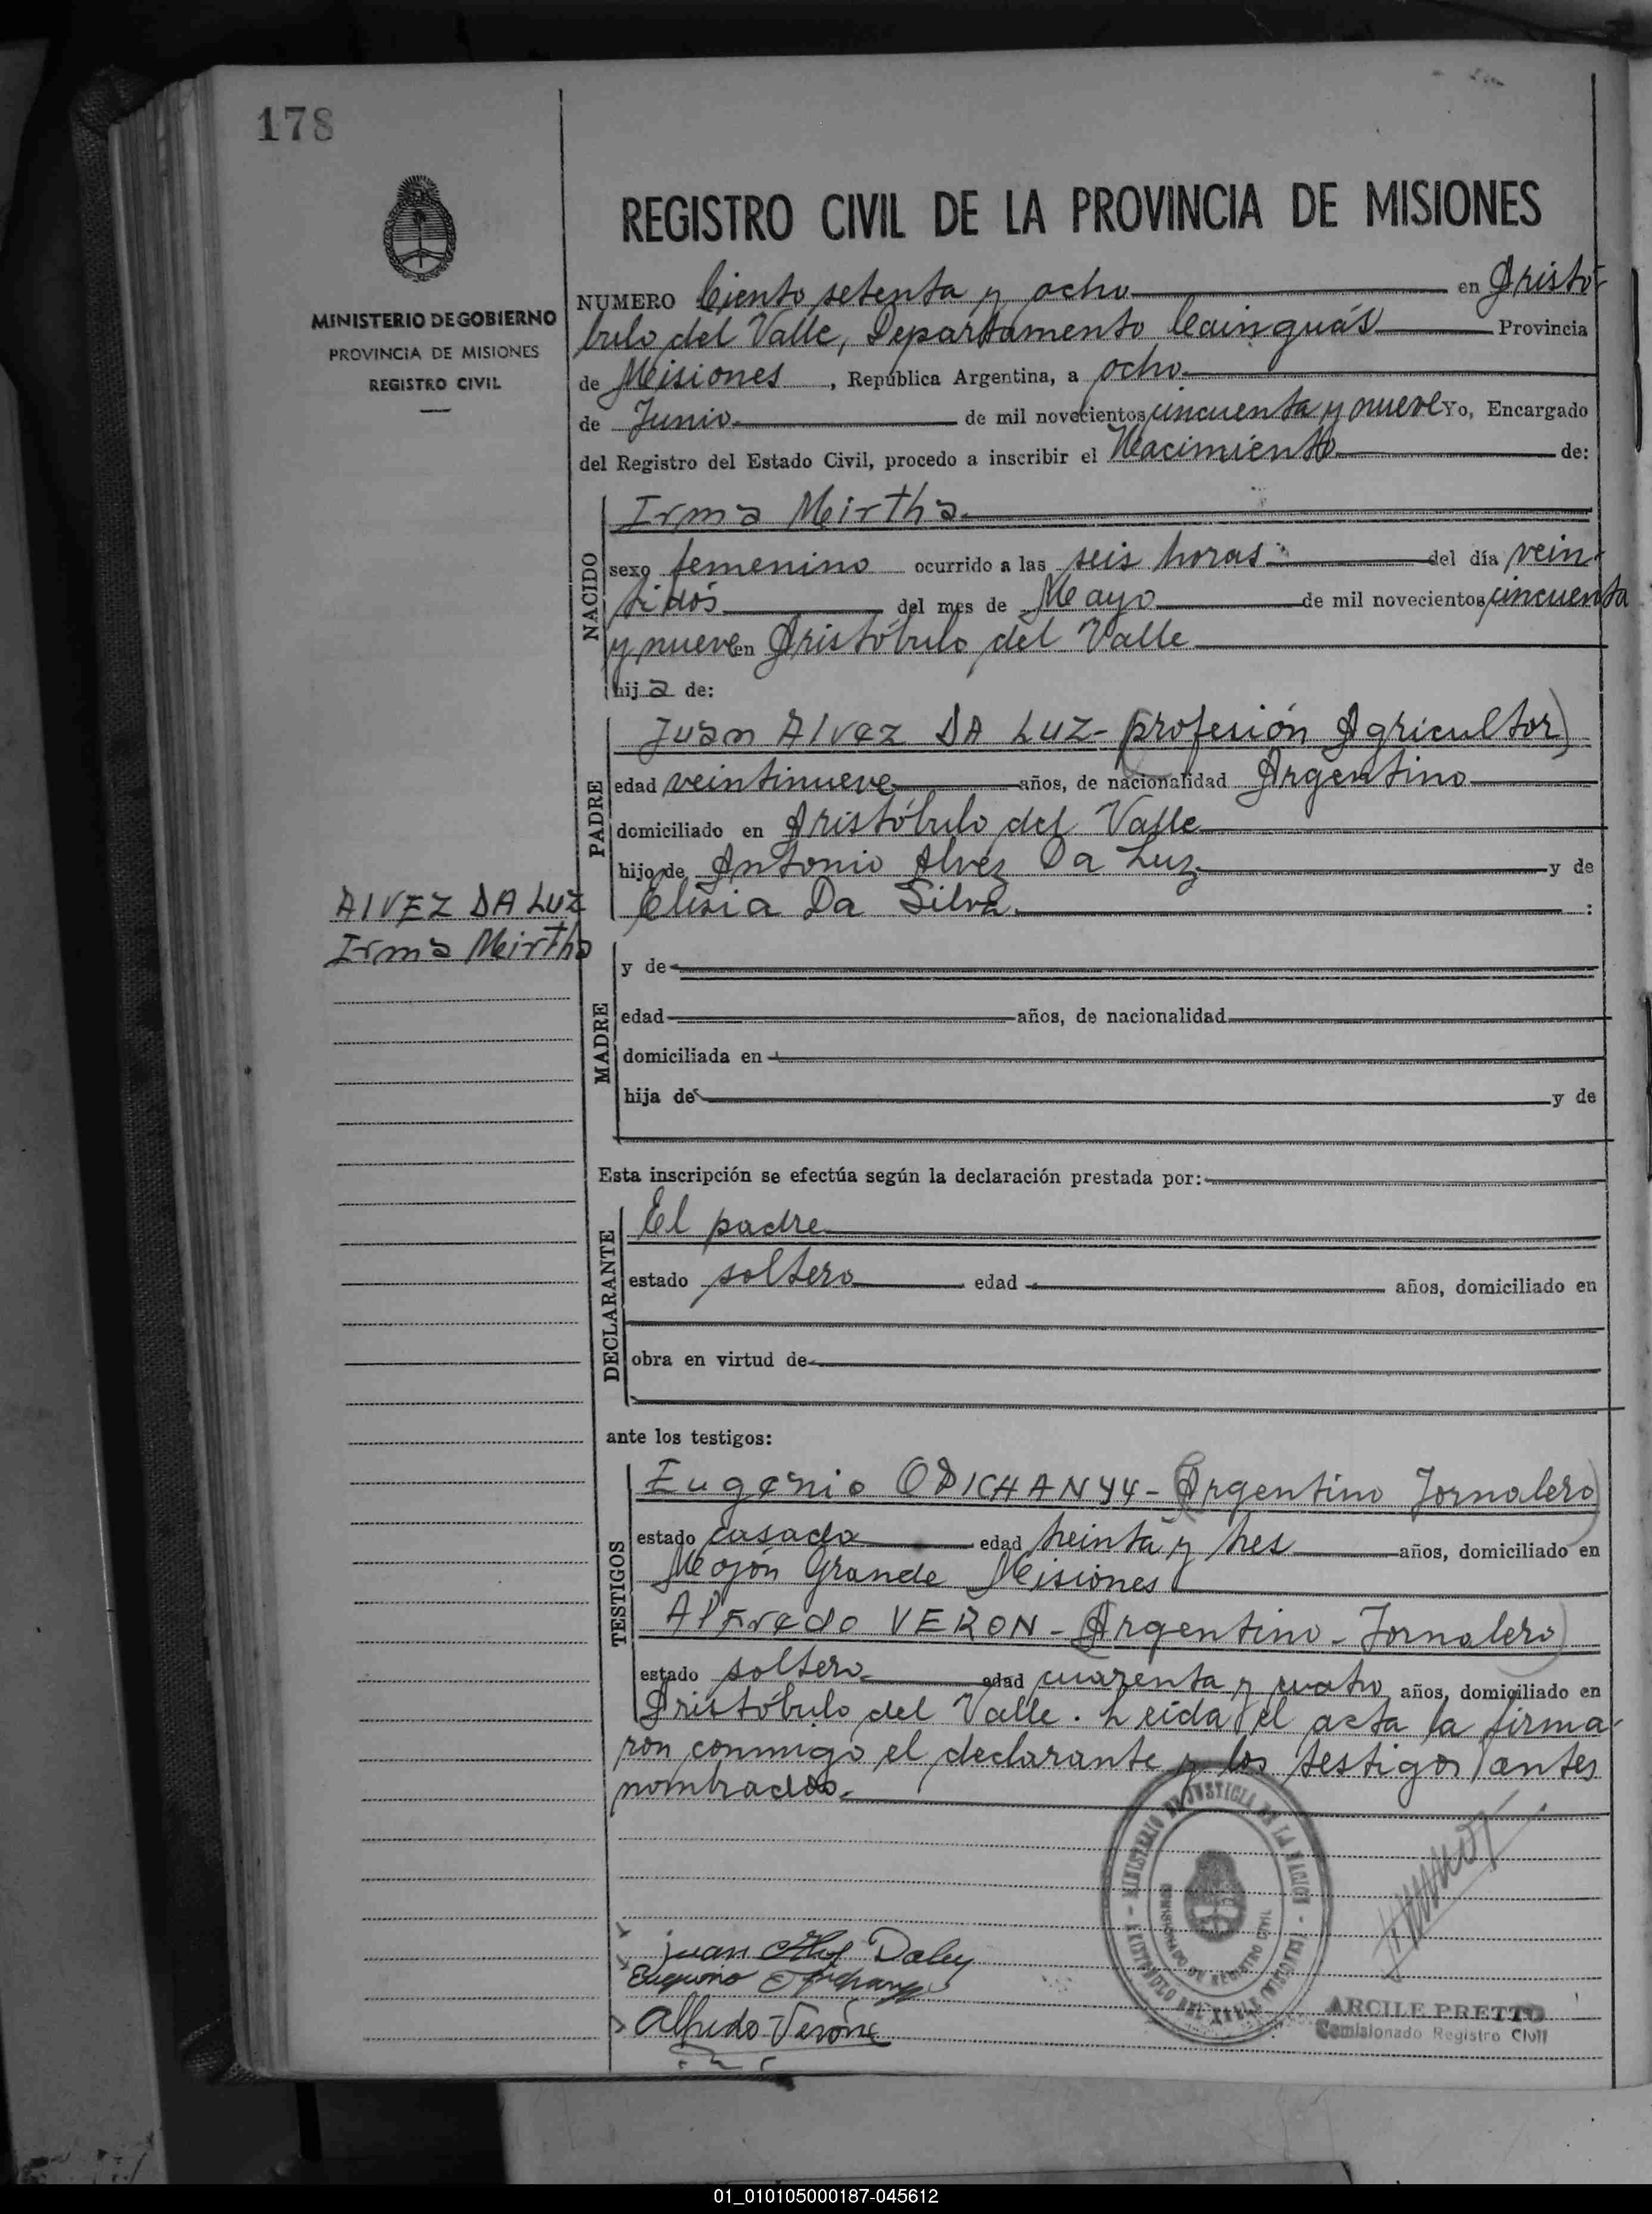 178
MINISTERIO DE GOBIERNO
PROVINCIA DE MISIONES
REGISTRO CIVIL
REGISTRO CIVIL DE LA PROVINCIA DE MISIONES
NUMERO Ciento setenta y ocho en Aristó-
bulo del Valle, Departamento Cainguás Provincia
de Misiones, República Argentina, a ocho
de Junio de mil novecientos cincuenta y nueve Yo, Encargado
del Registro del Estado Civil, procedo a inscribir el Nacimiento de:
NACIDO
Irma Meirtha
sexo femenino ocurrido a las seis horas del día vein-
tidós del mes de Mayo de mil novecientos cincuenta
y nueve en Aristóbulo del Valle
hija de:
PADRE
Juan Alvez DA LUZ- (profesión Agricultor)
edad veintinueve años, de nacionalidad Argentino
domiciliado en Aristóbulo del Valle
hijo de Antonio Alvez Da Luz y de
Elisia Da Silva :
ALVEZ DA LUZ
Irma Meirtha
MADRE
y de
edad años, de nacionalidad
domiciliada en
hija de y de
Esta inscripción se efectúa según la declaración prestada por:
DECLARANTE
El padre
estado soltero edad años, domiciliado en
obra en virtud de
ante los testigos:
TESTIGOS
Eugenio ODICHANYY - (Argentino Jornalero)
estado casado edad treinta y tres años, domiciliado en
Mojón Grande Misiones
Alfredo VERON - (Argentino - Jornalero)
estado soltero edad cuarenta y cuatro años, domiciliado en
Aristóbulo del Valle. Leida el acta la firma-
ron conmigo el declarante y los testigos antes
nombrados.
MINISTERIO DE JUSTICIA DE LA NACION
ARISTOBULO DEL VALLE (MISIONES)
REGISTRO CIVIL
juan Daluz
Eugenio
Alfredo Verón
ARCILE PRETTO
Comisionado Registro Civil
01_010105000187-045612